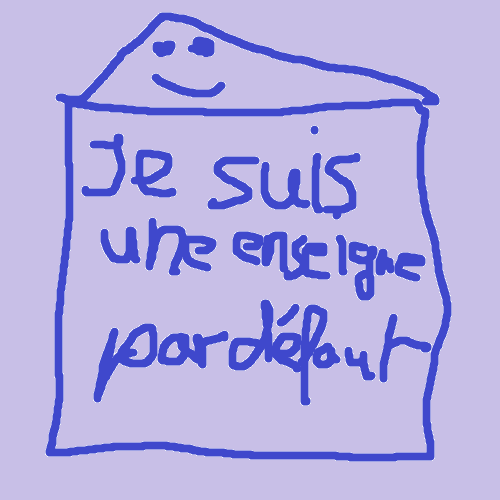 Je suis
une enseigne
par défaut